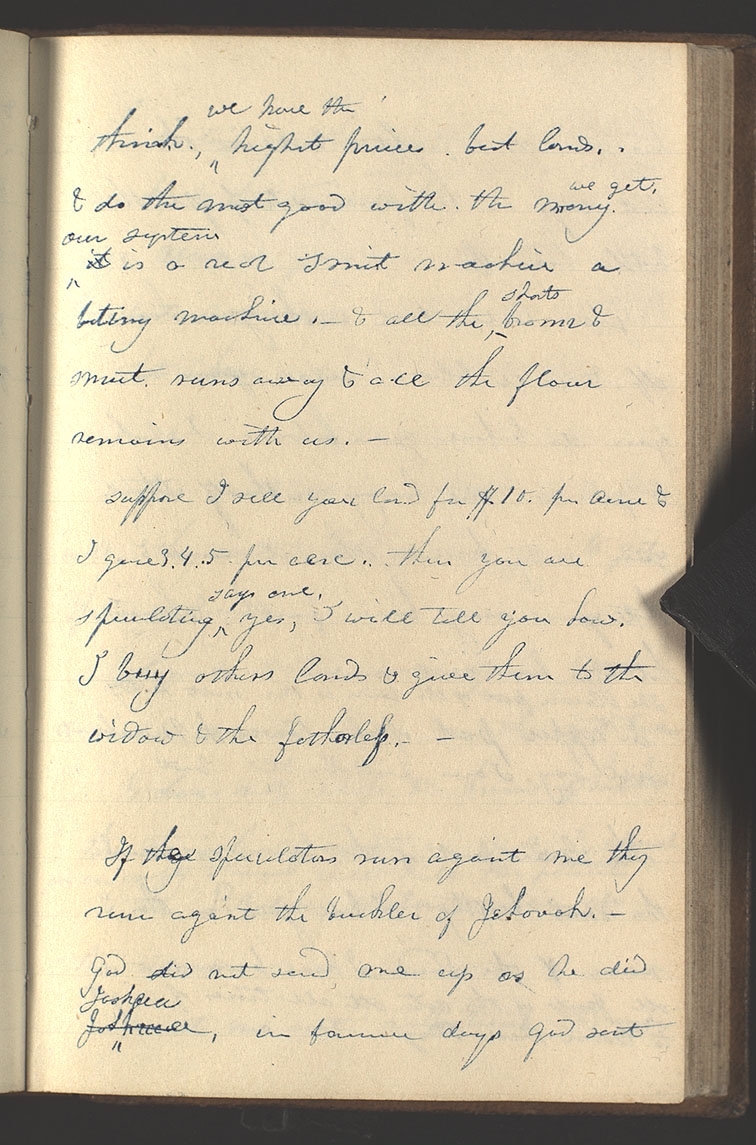 we have the
think., highst prices. best lands..
& do the most good with. the money.
we get.
our system
it is a real smut machine a
machine. — & all the, brann &
shorts
smut. runs away & all the flour
remains with us. —
suppose I sell you land for $10. per acre &
I gave 3.4.5. per acre.. then you are
says one.
speculating yes, I will tell you how.
I buy others lands & give them to the
widow & the fatherless. — —
If the speculators run against me they
run against the buckler of Jehovah. —
God did not send me up as he did
Joshua
Joshua, in former days God sent